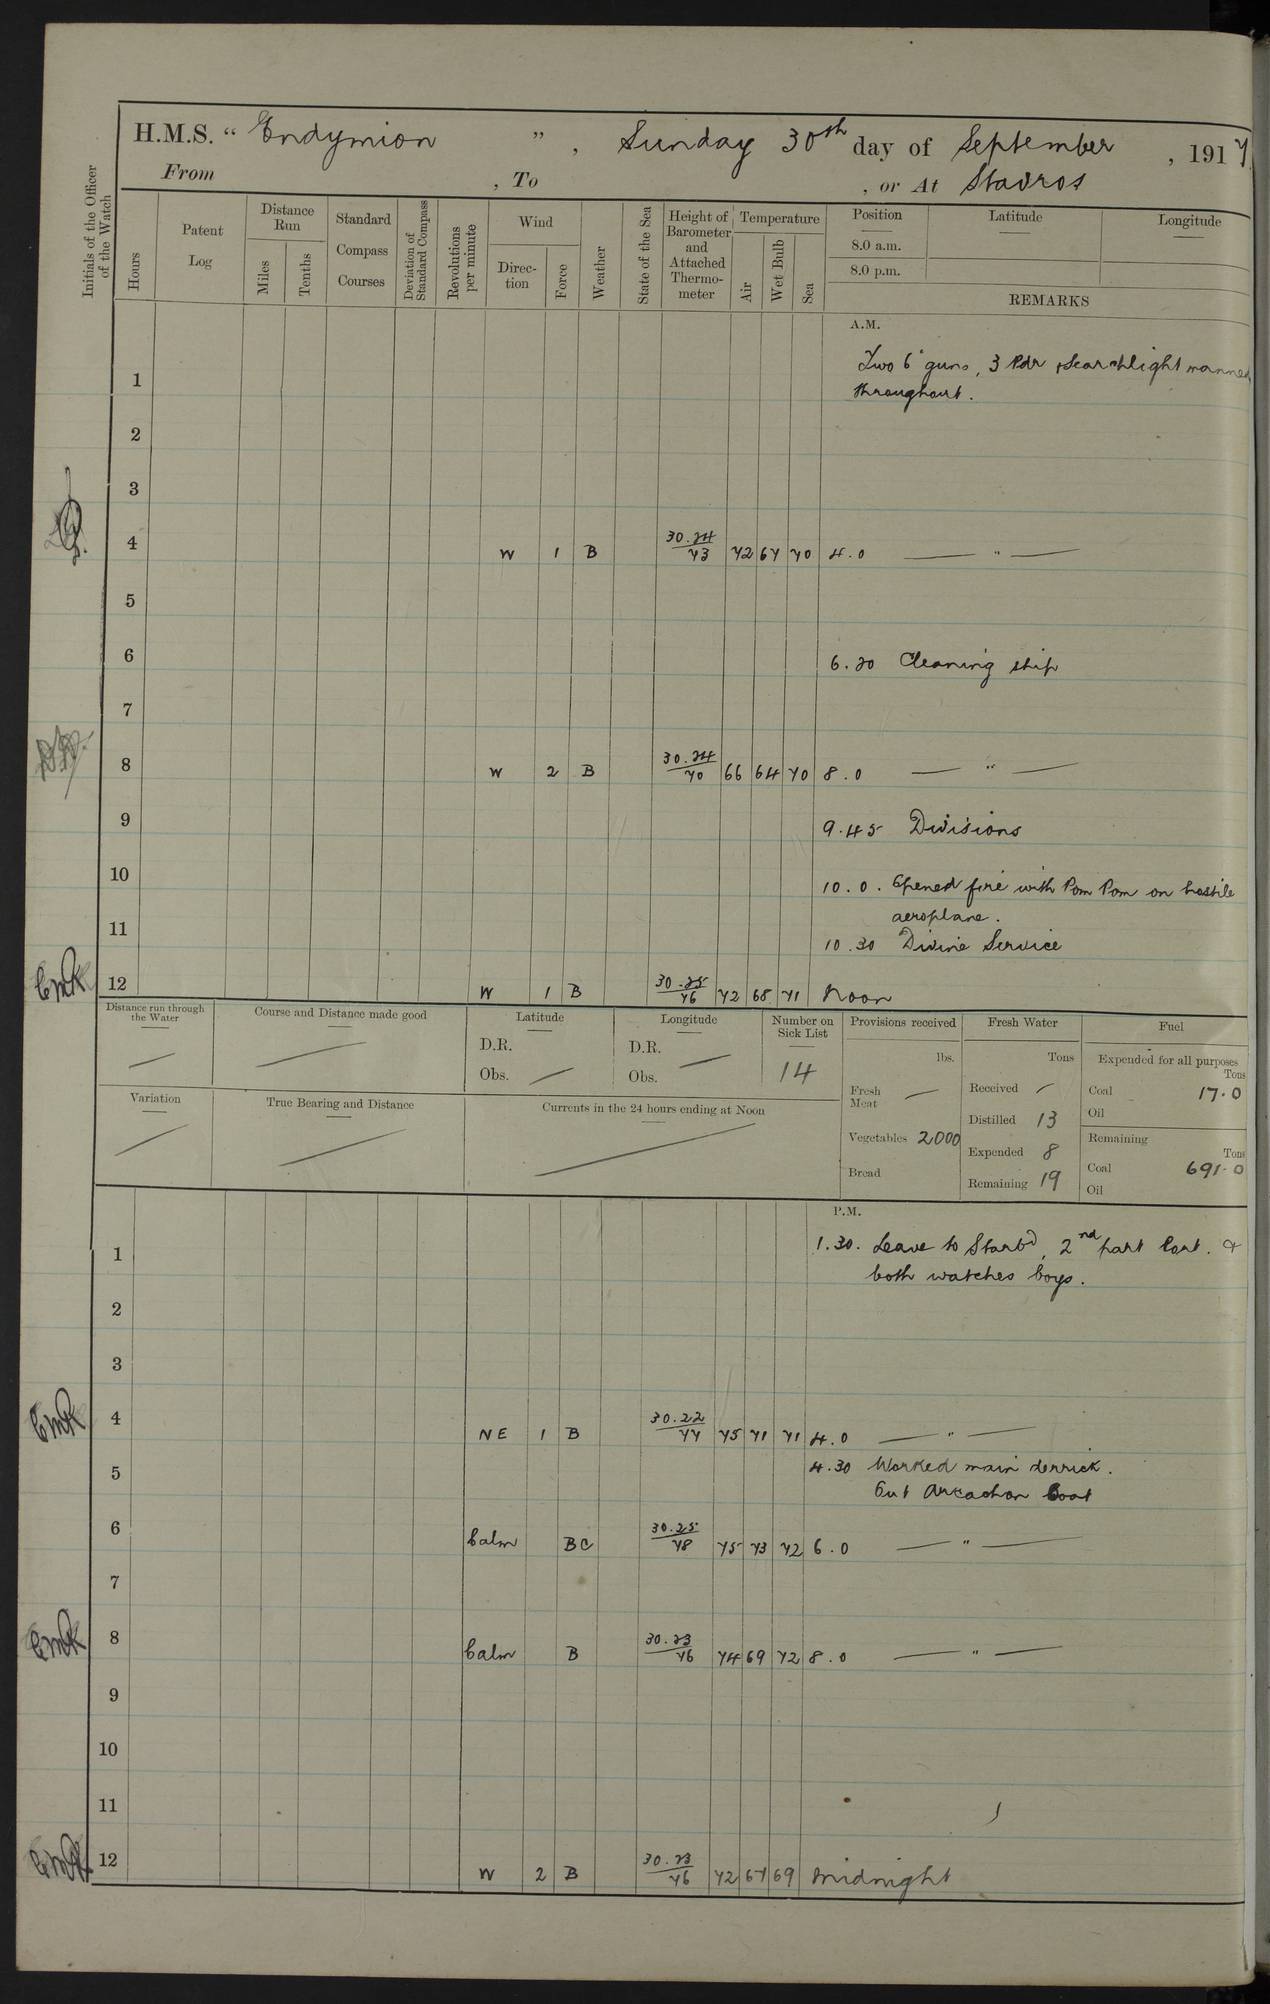 H.M.S. “ Endymion ” , Sunday 30th day of September , 1917.
From , To , or At Stavros
Initials of the Officer of the Watch
Hours
Patent Log
Distance Run
Miles
Tenths
Standard Compass Courses
Deviation of Standard Compass
Revolutions per minute
Wind
Direc-tion
Force
Weather
State of the Sea
Height of Barometer and Attached Thermo-meter
Temperature
Air
Wet Bulb
Sea
Position Latitude Longitude
8.0 a.m.
8.0 p.m.
REMARKS
A.M.
Two 6" guns, 3 Pdr & Searchlight manned
1 throughout.
2
3
4 W 1 B 30.24/73 72 67 70 4.0 — " —
5
6 6.20 Cleaning ship
7
8 W 2 B 30.24/70 66 64 70 8.0 — " —
9 9.45 Divisions
10 10.0. Opened fire with Pom Pom on hostile
aeroplane.
11 10.30 Divine Service
EMK 12 W 1 B 30.25/76 72 68 71 Noon
Distance run through the Water
Course and Distance made good
Latitude
D.R.
Obs. —
Longitude
D.R. —
Obs.
Number on Sick List
14
Provisions received
lbs.
Fresh Meat —
Vegetables 2000
Bread
Fresh Water
Tons
Received —
Distilled 13
Expended 8
Remaining 19
Fuel
Expended for all purposes
Tons
Coal 17.0
Oil
Remaining
Tons
Coal 691.0
Oil
Variation
True Bearing and Distance
Currents in the 24 hours ending at Noon
P.M.
1 1.30. Leave to Starbd, 2nd part Port. &
both watches boys.
2
3
EMK 4 NE 1 B 30.22/77 75 71 71 4.0 — " —
5 4.30 Worked main derrick.
Out Arcachon boat
6 Calm BC 30.25/78 75 73 72 6.0 — " —
7
EMK 8 Calm B 30.23/76 74 69 72 8.0 — " —
9
10
11
EMK 12 W 2 B 30.23/76 72 67 69 Midnight